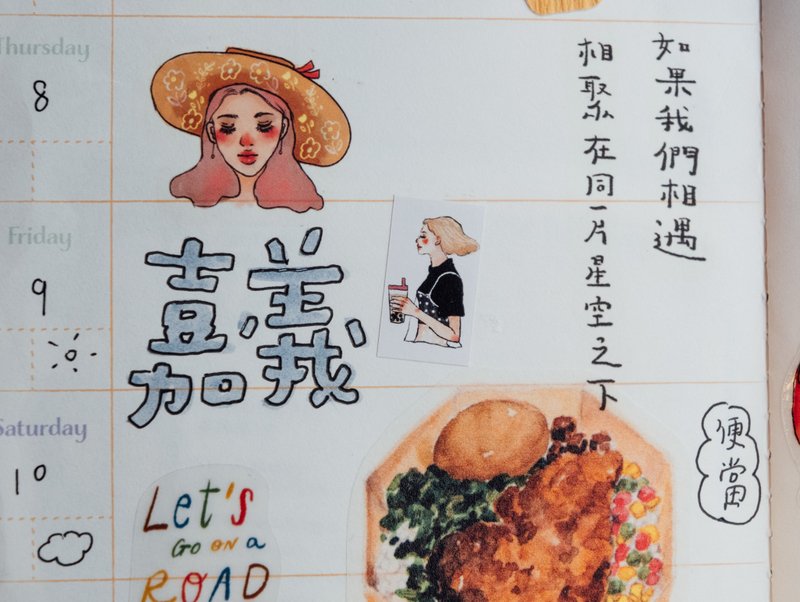 Thursday
8
Friday
9
Saturday
10
嘉義
如果我們相遇
相聚在同一片星空之下
便當
Let's
Go on a
ROAD